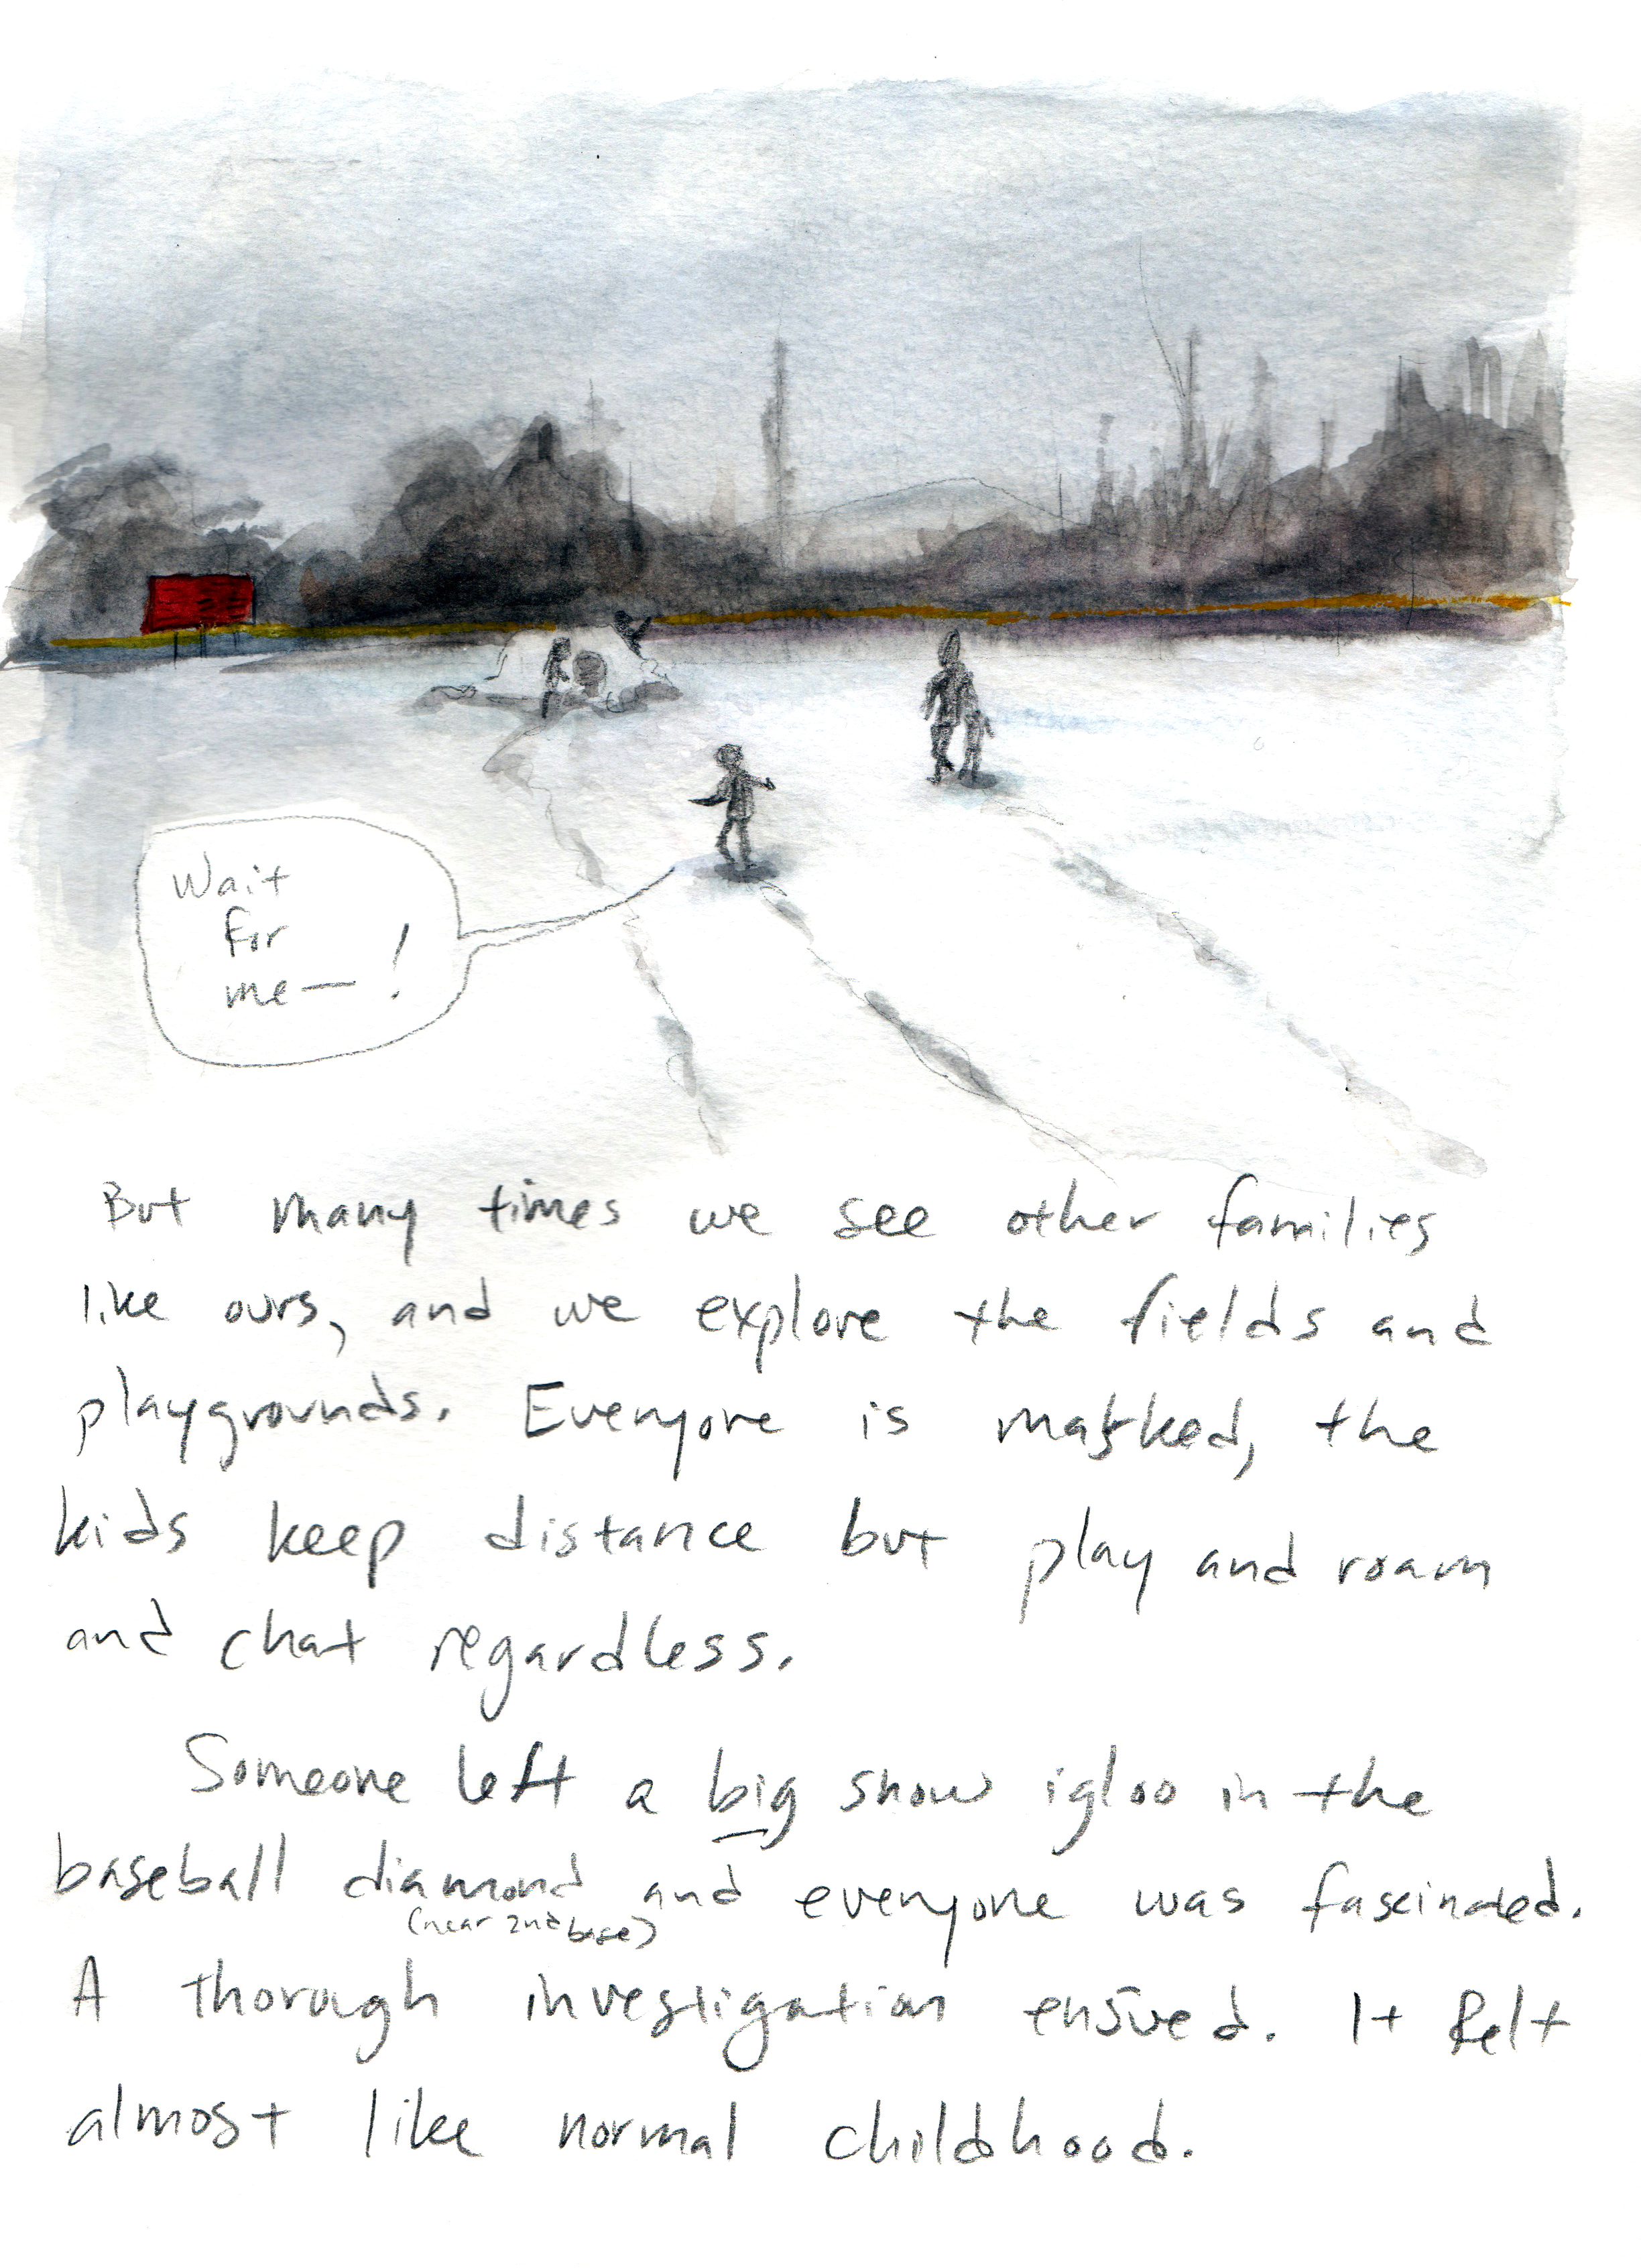 Wait
for
me— !
But many times we see other families
like ours, and we explore the fields and
playgrounds. Everyone is masked, the
kids keep distance but play and roam
and chat regardless.
Someone left a big snow igloo in the
baseball diamond and everyone was fascinated.
(near 2nd base)
A thorough investigation ensued. It felt
almost like normal childhood.